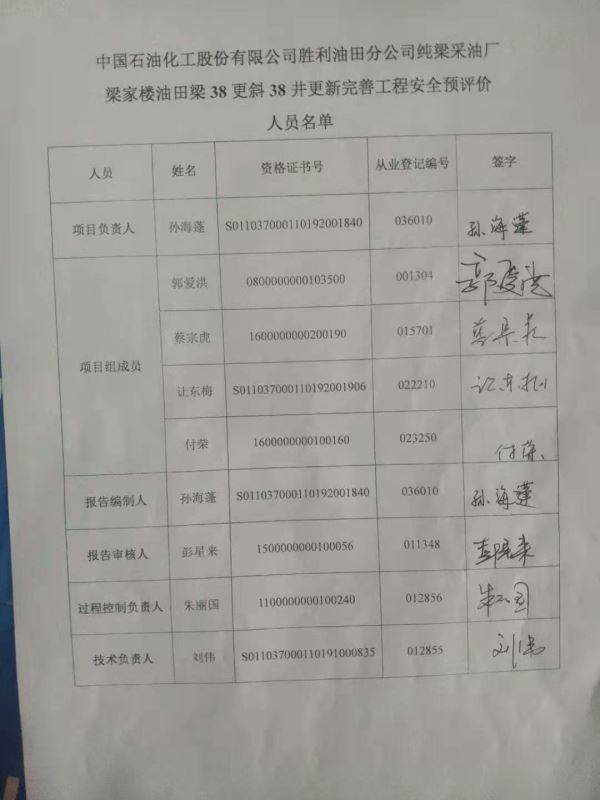 中国石油化工股份有限公司胜利油田分公司纯梁采油厂
梁家楼油田梁 38 更斜 38 井更新完善工程安全预评价
人员名单
人员 姓名 资格证书号 从业登记编号 签字
项目负责人 孙海蓬 S011037000110192001840 036010 孙海蓬
项目组成员 郭爱洪 0800000000103500 001304 郭爱洪
蔡宗虎 1600000000200190 015701
让东梅 S011037000110192001906 022210 让东梅
付荣 1600000000100160 023250 付荣
报告编制人 孙海蓬 S011037000110192001840 036010 孙海蓬
报告审核人 彭星来 1500000000100056 011348 彭星来
过程控制负责人 朱丽国 1100000000100240 012856 朱丽国
技术负责人 刘伟 S011037000110191000835 012855 刘伟